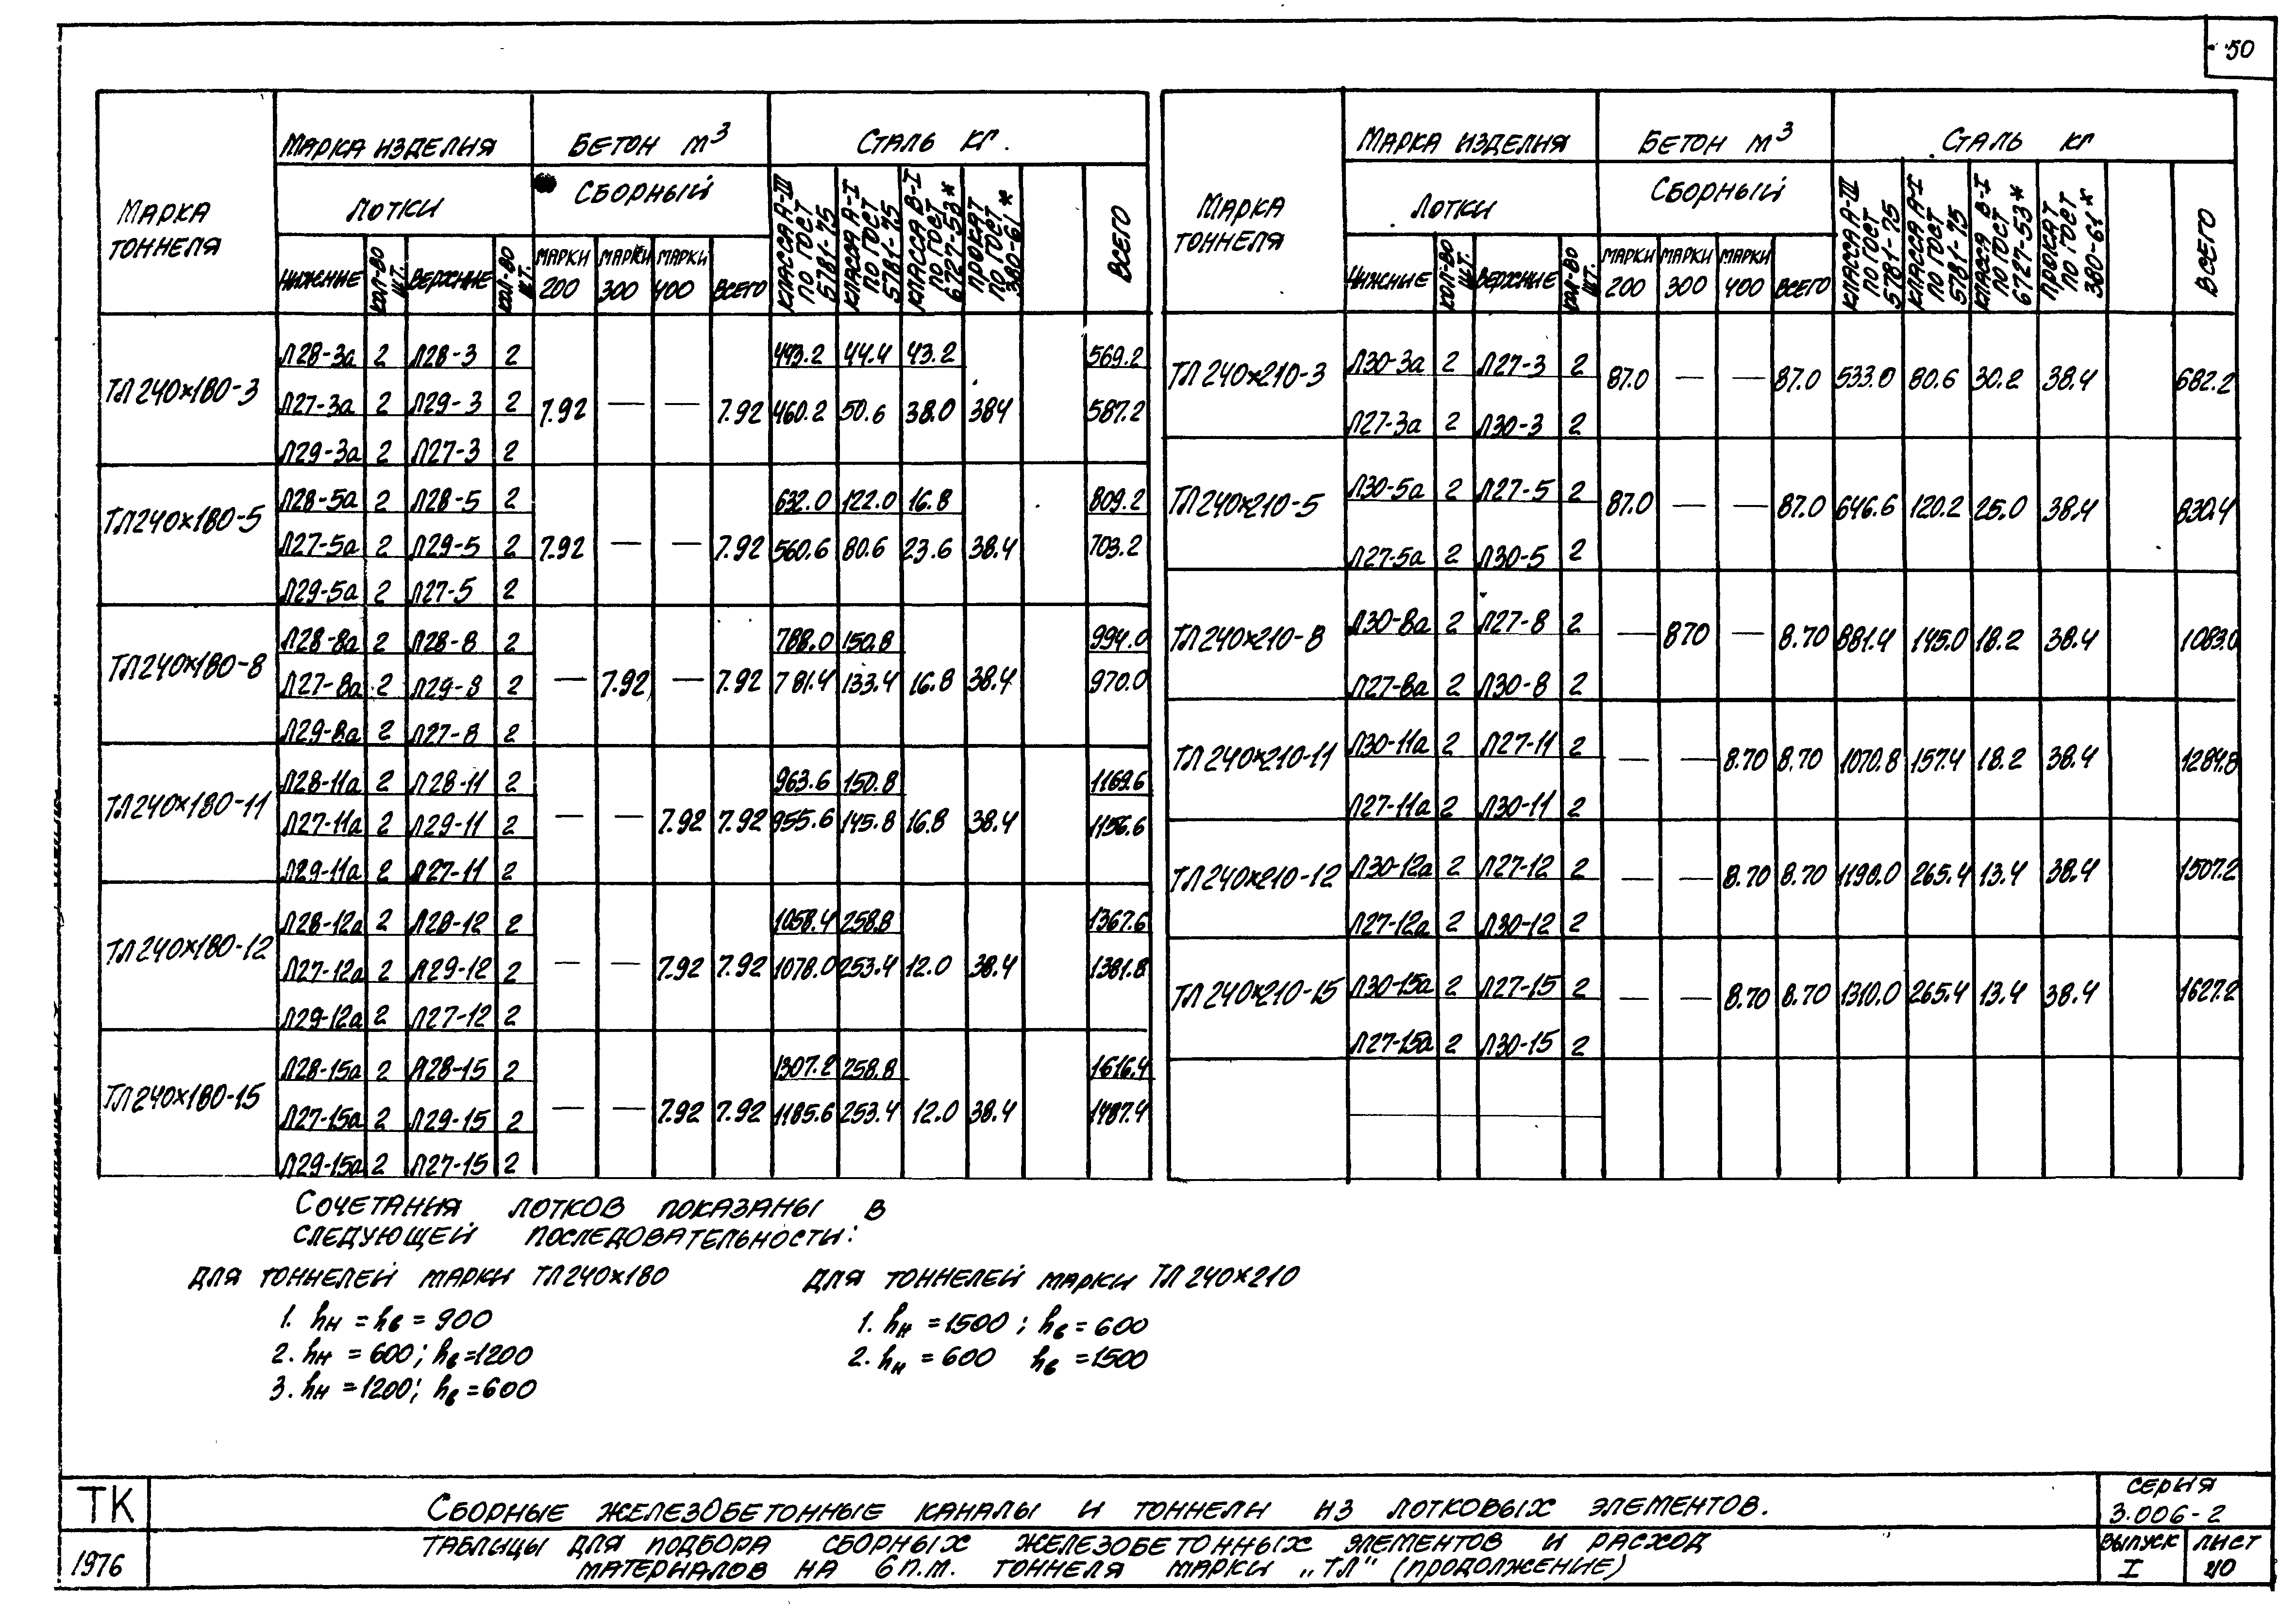 50
МАРКА ТОННЕЛЯ
МАРКА ИЗДЕЛИЯ
БЕТОН м³
СТАЛЬ КГ.
ЛОТКИ
СБОРНЫЙ
КЛАССА А-III ПО ГОСТ 5781-75
КЛАССА А-I ПО ГОСТ 5781-75
КЛАССА В-I ПО ГОСТ 6727-53*
ПРОКАТ ПО ГОСТ 380-61*
ВСЕГО
НИЖНИЕ КОЛ-ВО ШТ. ВЕРХНИЕ КОЛ-ВО ШТ. МАРКИ 200 МАРКИ 300 МАРКИ 400 ВСЕГО
ТЛ240×180-3
Л28-3а 2 Л28-3 2 443.2 44.4 43.2 569.2
Л27-3а 2 Л29-3 2 7.92 — — 7.92 460.2 50.6 38.0 384 587.2
Л29-3а 2 Л27-3 2
ТЛ240×180-5
Л28-5а 2 Л28-5 2 632.0 122.0 16.8 809.2
Л27-5а 2 Л29-5 2 7.92 — — 7.92 560.6 80.6 23.6 38.4 703.2
Л29-5а 2 Л27-5 2
ТЛ240×180-8
Л28-8а 2 Л28-8 2 788.0 150.8 994.0
Л27-8а 2 Л29-8 2 — 7.92 — 7.92 781.4 133.4 16.8 38.4 970.0
Л29-8а 2 Л27-8 2
ТЛ240×180-11
Л28-11а 2 Л28-11 2 963.6 150.8 1169.6
Л27-11а 2 Л29-11 2 — — 7.92 7.92 955.6 145.8 16.8 38.4 1156.6
Л29-11а 2 Л27-11 2
ТЛ240×180-12
Л28-12а 2 Л28-12 2 1058.4 258.8 1367.6
Л27-12а 2 Л29-12 2 — — 7.92 7.92 1078.0 253.4 12.0 38.4 1381.8
Л29-12а 2 Л27-12 2
ТЛ240×180-15
Л28-15а 2 Л28-15 2 1307.2 258.8 1616.4
Л27-15а 2 Л29-15 2 — — 7.92 7.92 1185.6 253.4 12.0 38.4 1487.4
Л29-15а 2 Л27-15 2
МАРКА ТОННЕЛЯ
МАРКА ИЗДЕЛИЯ
БЕТОН м³
СТАЛЬ КГ
ЛОТКИ
СБОРНЫЙ
КЛАССА А-III ПО ГОСТ 5781-75
КЛАССА А-I ПО ГОСТ 5781-75
КЛАССА В-I ПО ГОСТ 6727-53*
ПРОКАТ ПО ГОСТ 380-61*
ВСЕГО
НИЖНИЕ КОЛ-ВО ШТ. ВЕРХНИЕ КОЛ-ВО ШТ. МАРКИ 200 МАРКИ 300 МАРКИ 400 ВСЕГО
ТЛ240×210-3
Л30-3а 2 Л27-3 2 87.0 — — 87.0 533.0 80.6 30.2 38.4 682.2
Л27-3а 2 Л30-3 2
ТЛ240×210-5
Л30-5а 2 Л27-5 2 87.0 — — 87.0 646.6 120.2 25.0 38.4 830.4
Л27-5а 2 Л30-5 2
ТЛ240×210-8
Л30-8а 2 Л27-8 2 — 870 — 8.70 881.4 145.0 18.2 38.4 1083.0
Л27-8а 2 Л30-8 2
ТЛ240×210-11
Л30-11а 2 Л27-11 2 — — 8.70 8.70 1070.8 157.4 18.2 38.4 1284.8
Л27-11а 2 Л30-11 2
ТЛ240×210-12
Л30-12а 2 Л27-12 2 — — 8.70 8.70 1190.0 265.4 13.4 38.4 1507.2
Л27-12а 2 Л30-12 2
ТЛ240×210-15
Л30-15а 2 Л27-15 2 — — 8.70 8.70 1310.0 265.4 13.4 38.4 1627.2
Л27-15а 2 Л30-15 2
СОЧЕТАНИЯ ЛОТКОВ ПОКАЗАНЫ В
СЛЕДУЮЩЕЙ ПОСЛЕДОВАТЕЛЬНОСТИ:
ДЛЯ ТОННЕЛЕЙ МАРКИ ТЛ240×180
1. hн = hв = 900
2. hн = 600; hв = 1200
3. hн = 1200; hв = 600
ДЛЯ ТОННЕЛЕЙ МАРКИ ТЛ240×210
1. hн = 1500; hв = 600
2. hн = 600 hв = 1500
ТК
1976
СБОРНЫЕ ЖЕЛЕЗОБЕТОННЫЕ КАНАЛЫ И ТОННЕЛИ ИЗ ЛОТКОВЫХ ЭЛЕМЕНТОВ.
ТАБЛИЦЫ ДЛЯ ПОДБОРА СБОРНЫХ ЖЕЛЕЗОБЕТОННЫХ ЭЛЕМЕНТОВ И РАСХОД
МАТЕРИАЛОВ НА 6 П.М. ТОННЕЛЯ МАРКИ „ТЛ" (ПРОДОЛЖЕНИЕ)
СЕРИЯ
3.006-2
ВЫПУСК
I
ЛИСТ
40